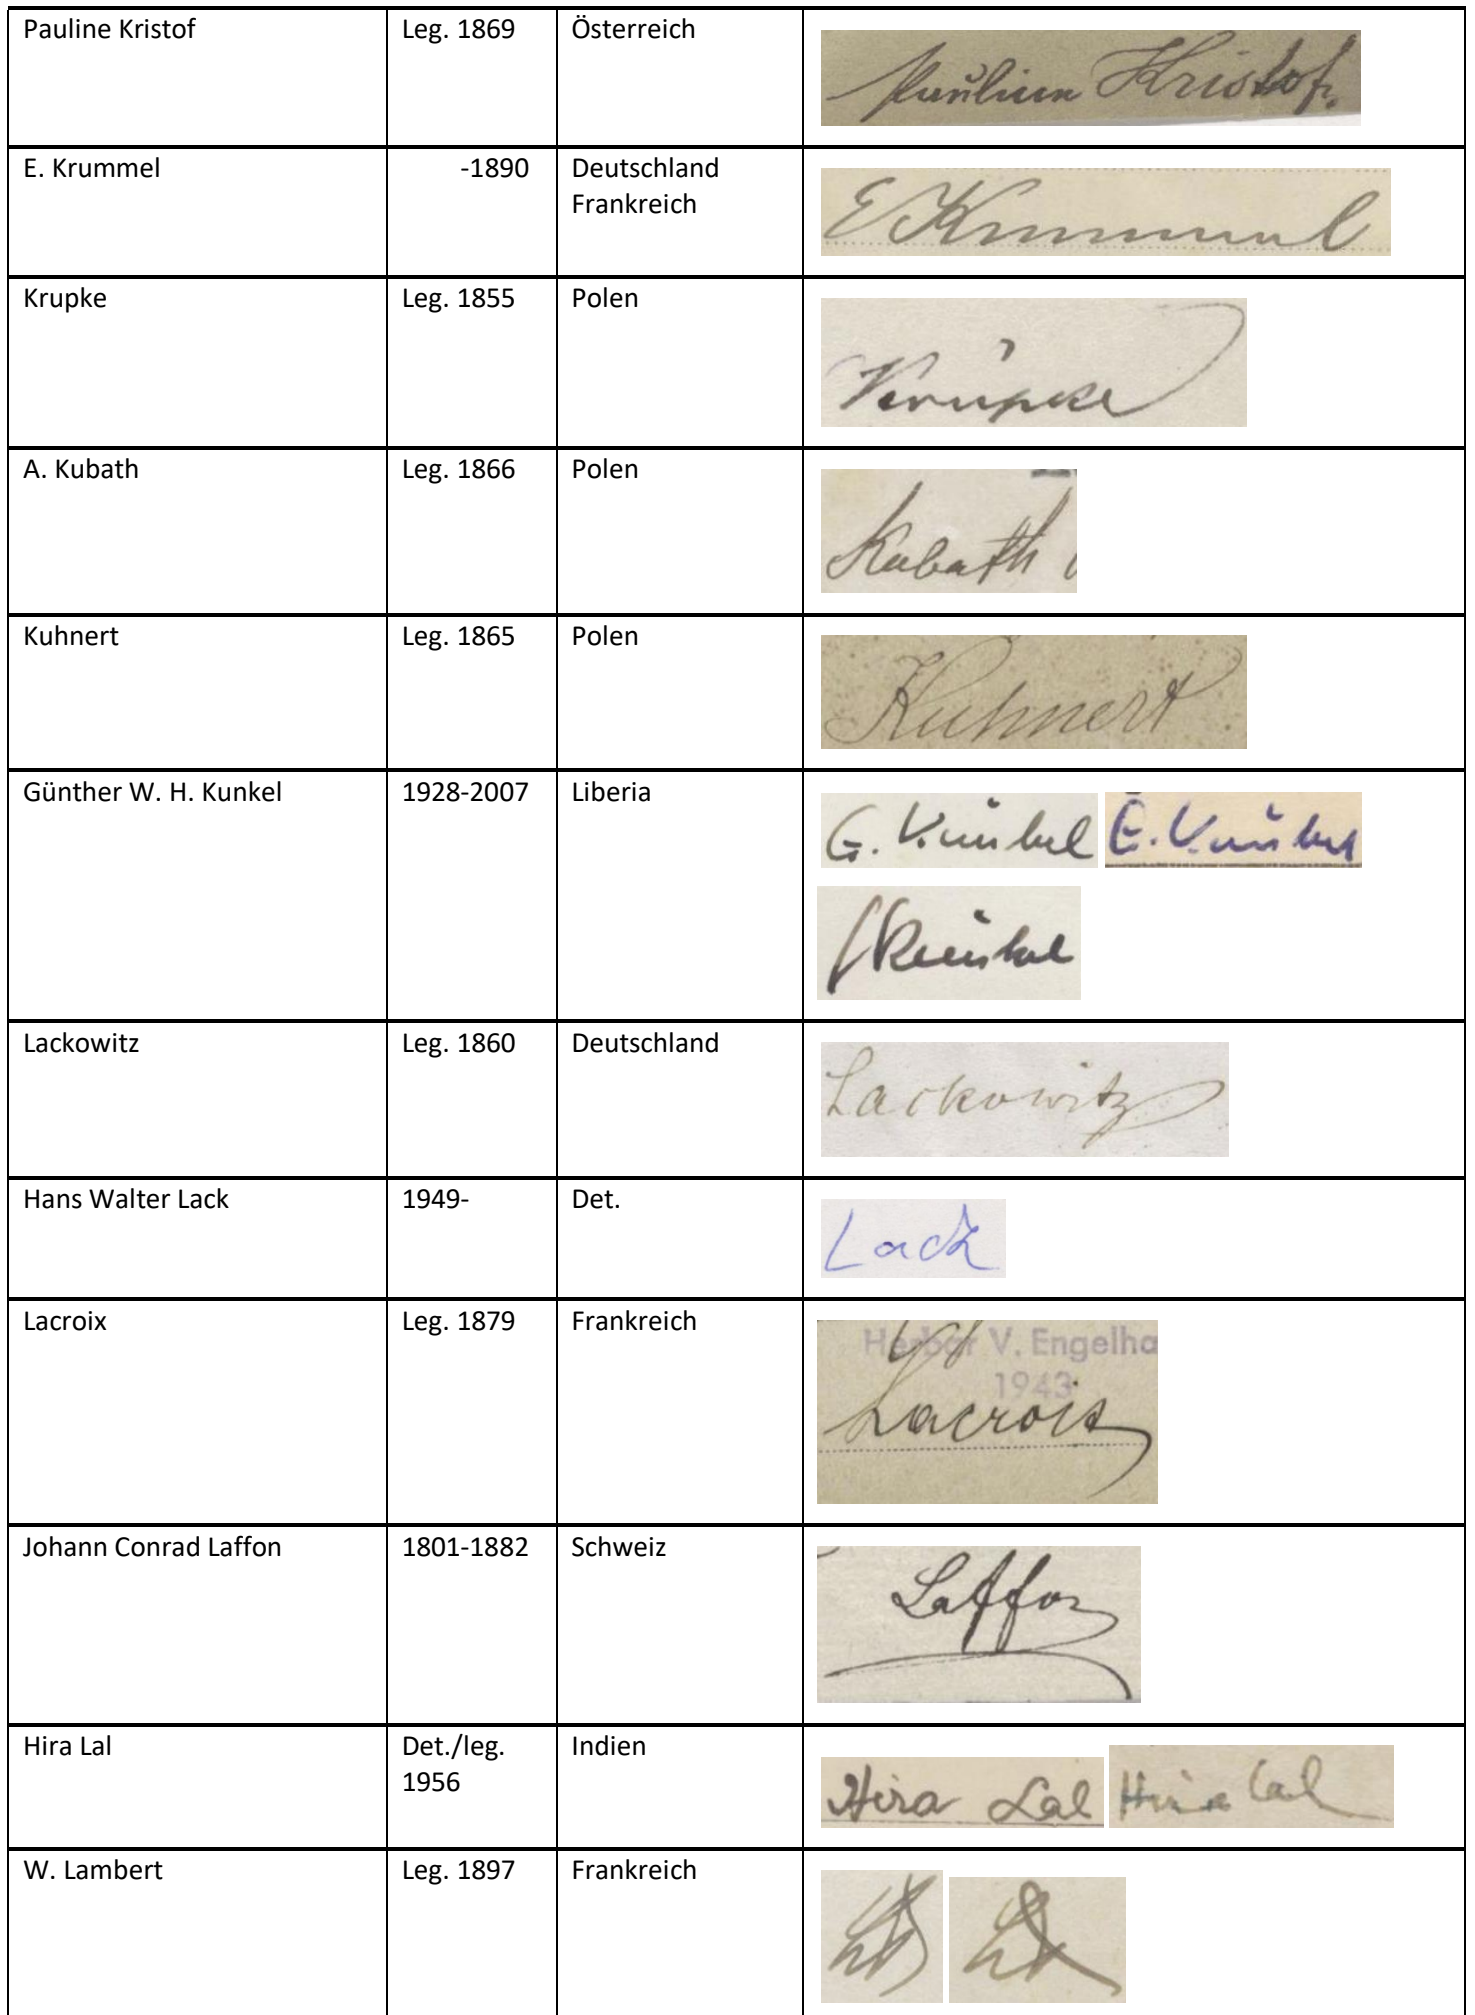 Pauline Kristof Leg. 1869 Österreich Pauline Kristof.
E. Krummel -1890 Deutschland E Krummel
Frankreich
Krupke Leg. 1855 Polen Krupke
A. Kubath Leg. 1866 Polen Kubath
Kuhnert Leg. 1865 Polen Kuhnert
Günther W. H. Kunkel 1928-2007 Liberia G. Kunkel G. Kunkel
Kunkel
Lackowitz Leg. 1860 Deutschland Lackowitz
Hans Walter Lack 1949- Det. Lack
Lacroix Leg. 1879 Frankreich Herbar V. Engelha
1943
Lacroix
Johann Conrad Laffon 1801-1882 Schweiz Laffon
Hira Lal Det./leg. Indien Hira Lal Hira Lal
1956
W. Lambert Leg. 1897 Frankreich